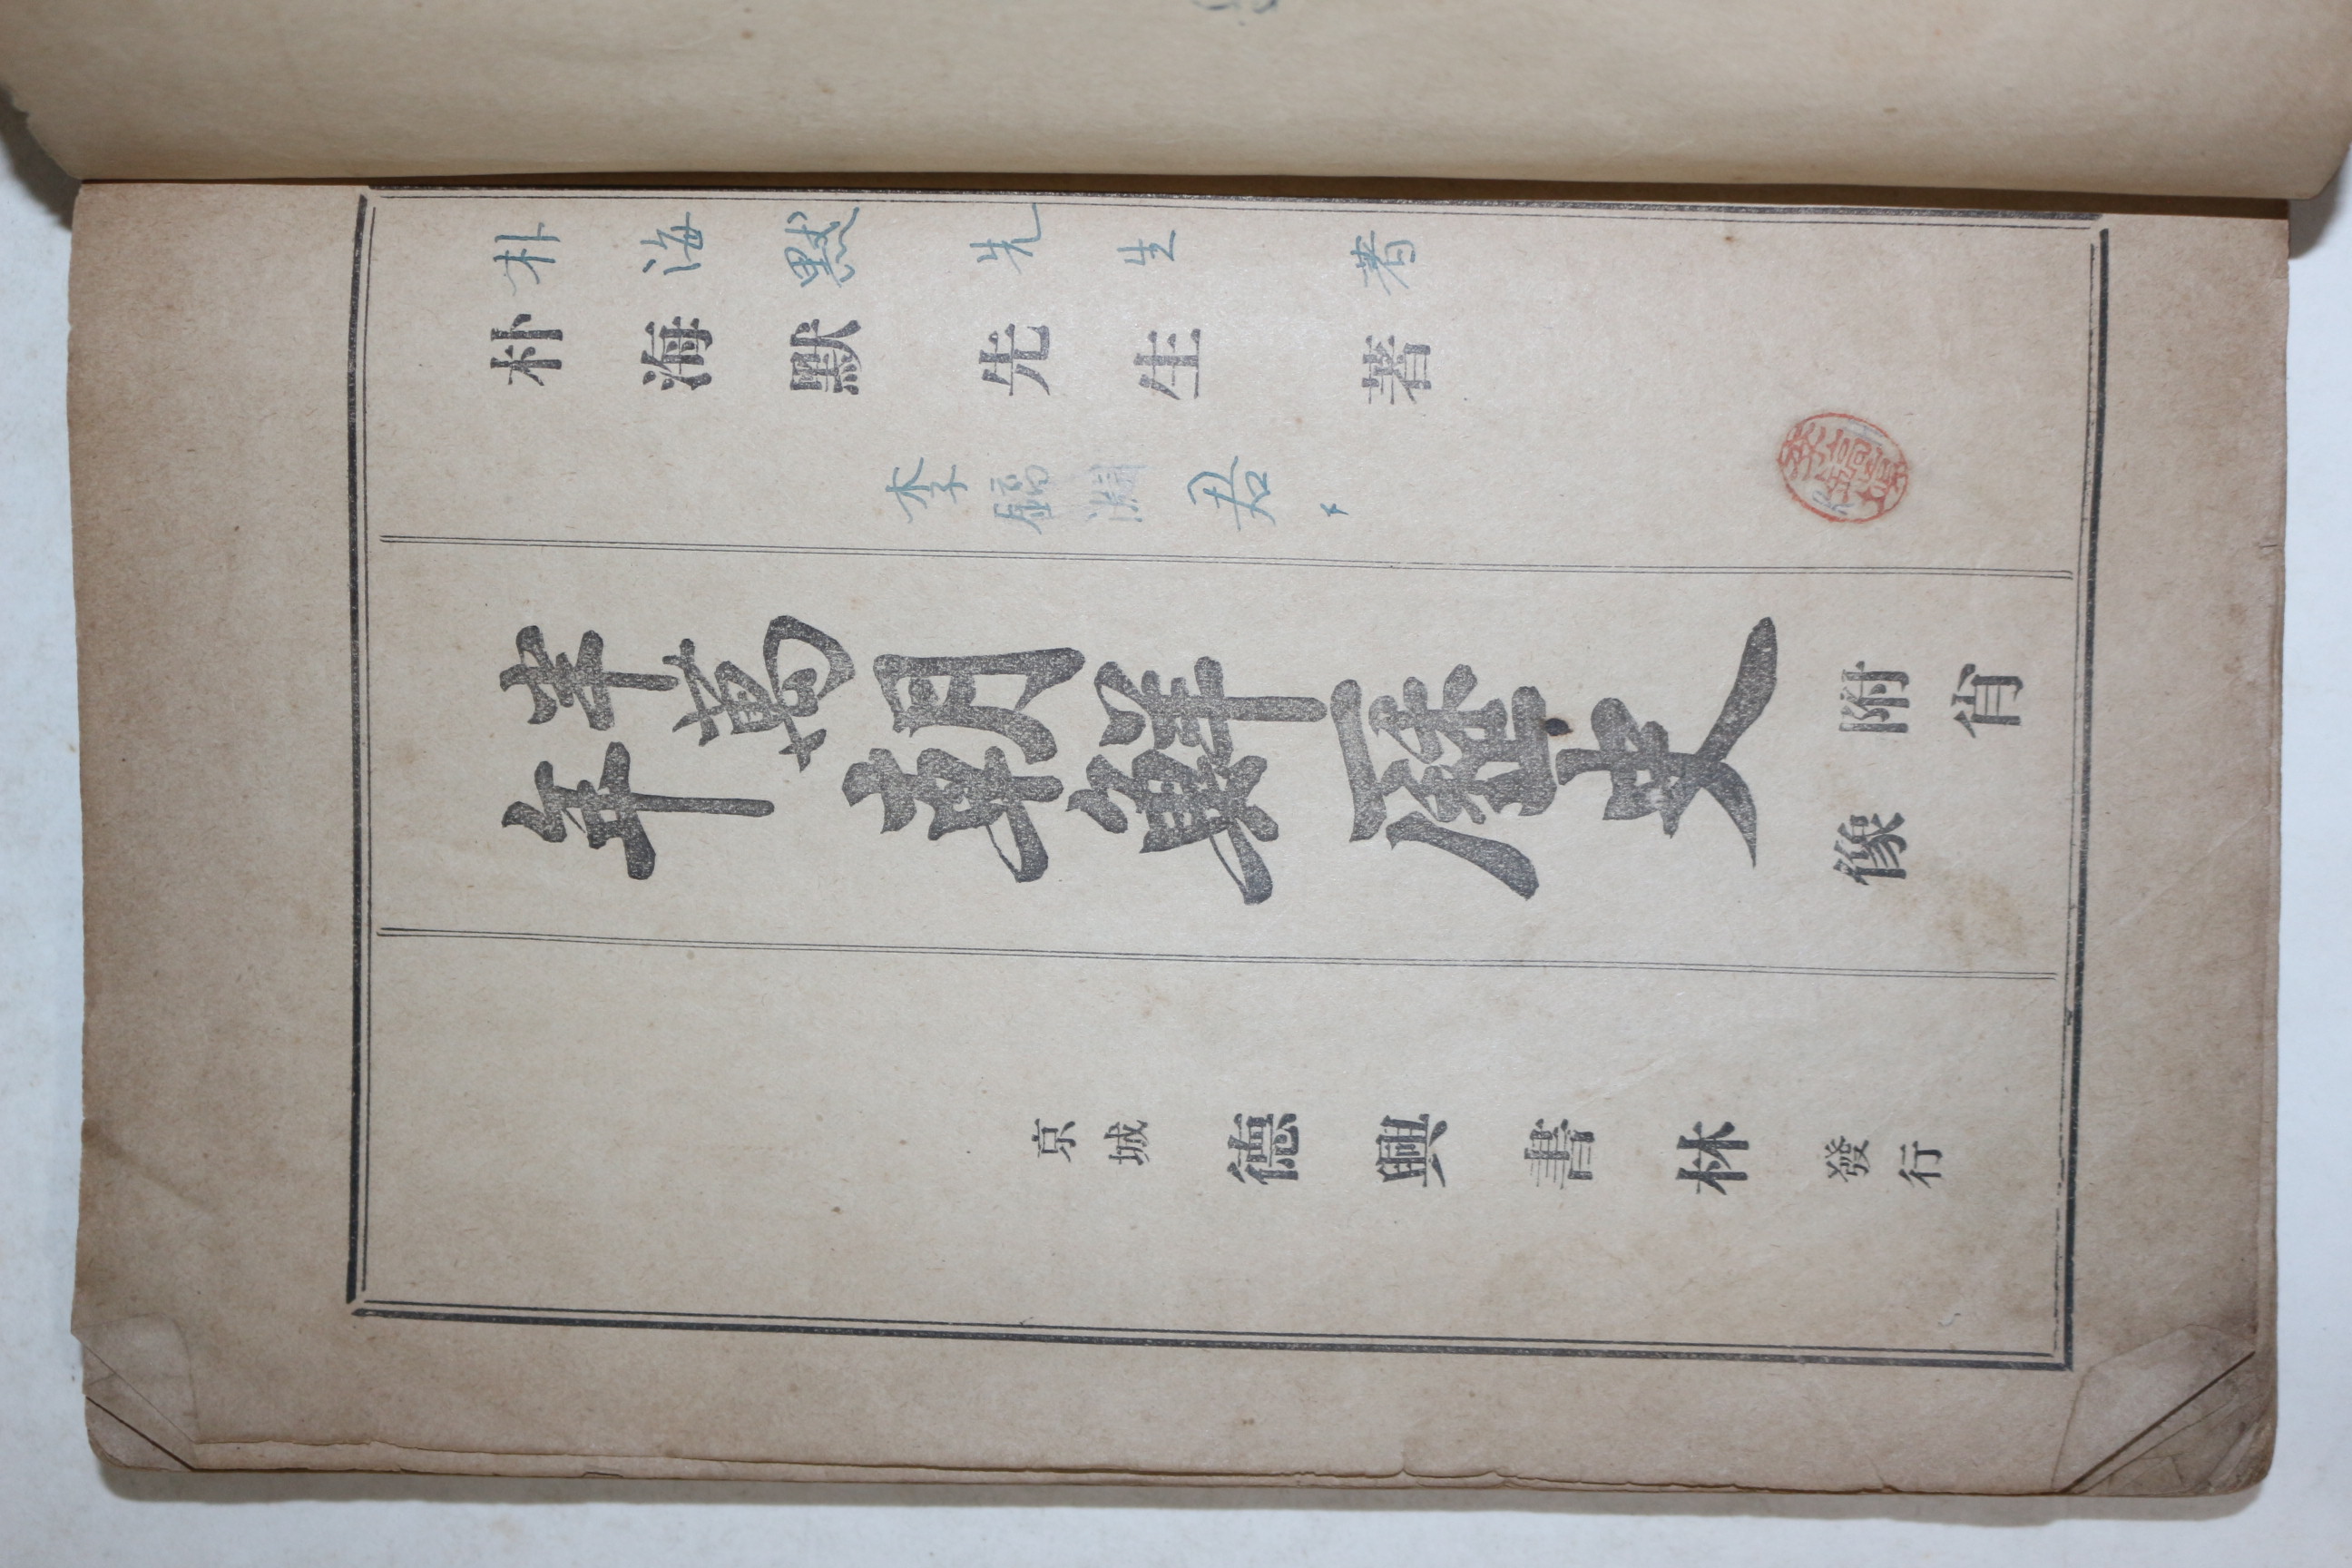 朴海默先生 著
朴海默先生 著
李鎬淵君
半萬年朝鮮歷史 附肖像
京城 德興書林 發行